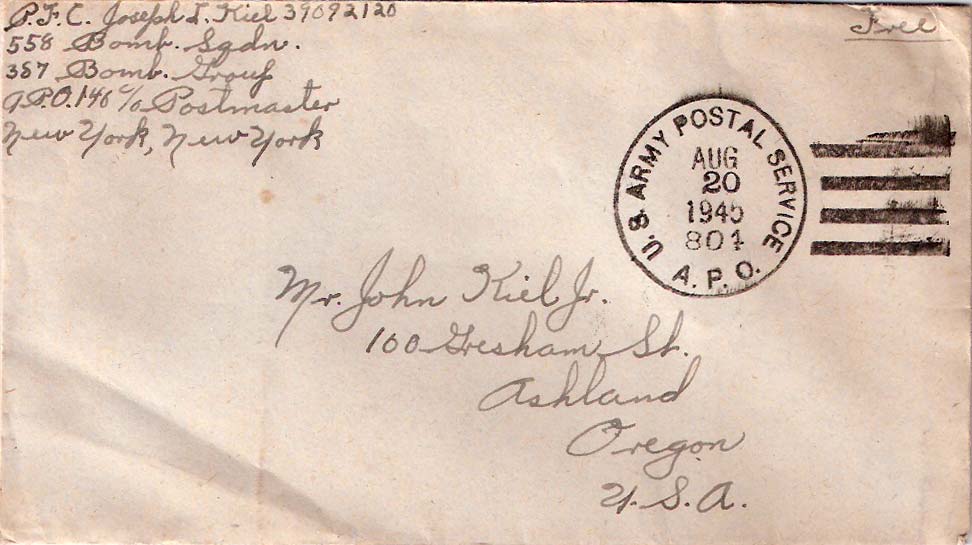 P.F.C. Joseph I. Kiel 39092120
558 Bomb. Sqdn.
387 Bomb. Group
A.P.O. 140 c/o Postmaster
New York, New York
Free
U.S. ARMY POSTAL SERVICE
AUG
20
1945
801
A.P.O.
Mr. John Kiel Jr.
100 Gresham St.
Ashland
Oregon
U.S.A.